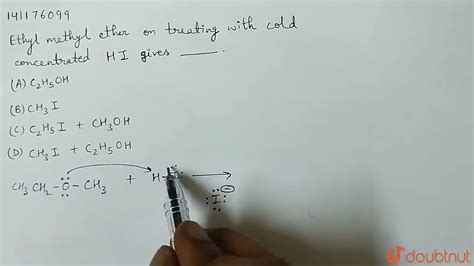 141176099
Ethyl methyl ether on treating with cold
concentrated HI gives ____.
(A) C₂H₅OH
(B) CH₃I
(C) C₂H₅I + CH₃OH
(D) CH₃I + C₂H₅OH
CH₃CH₂-O-CH₃ + H-I →
I⊖
doubtnut